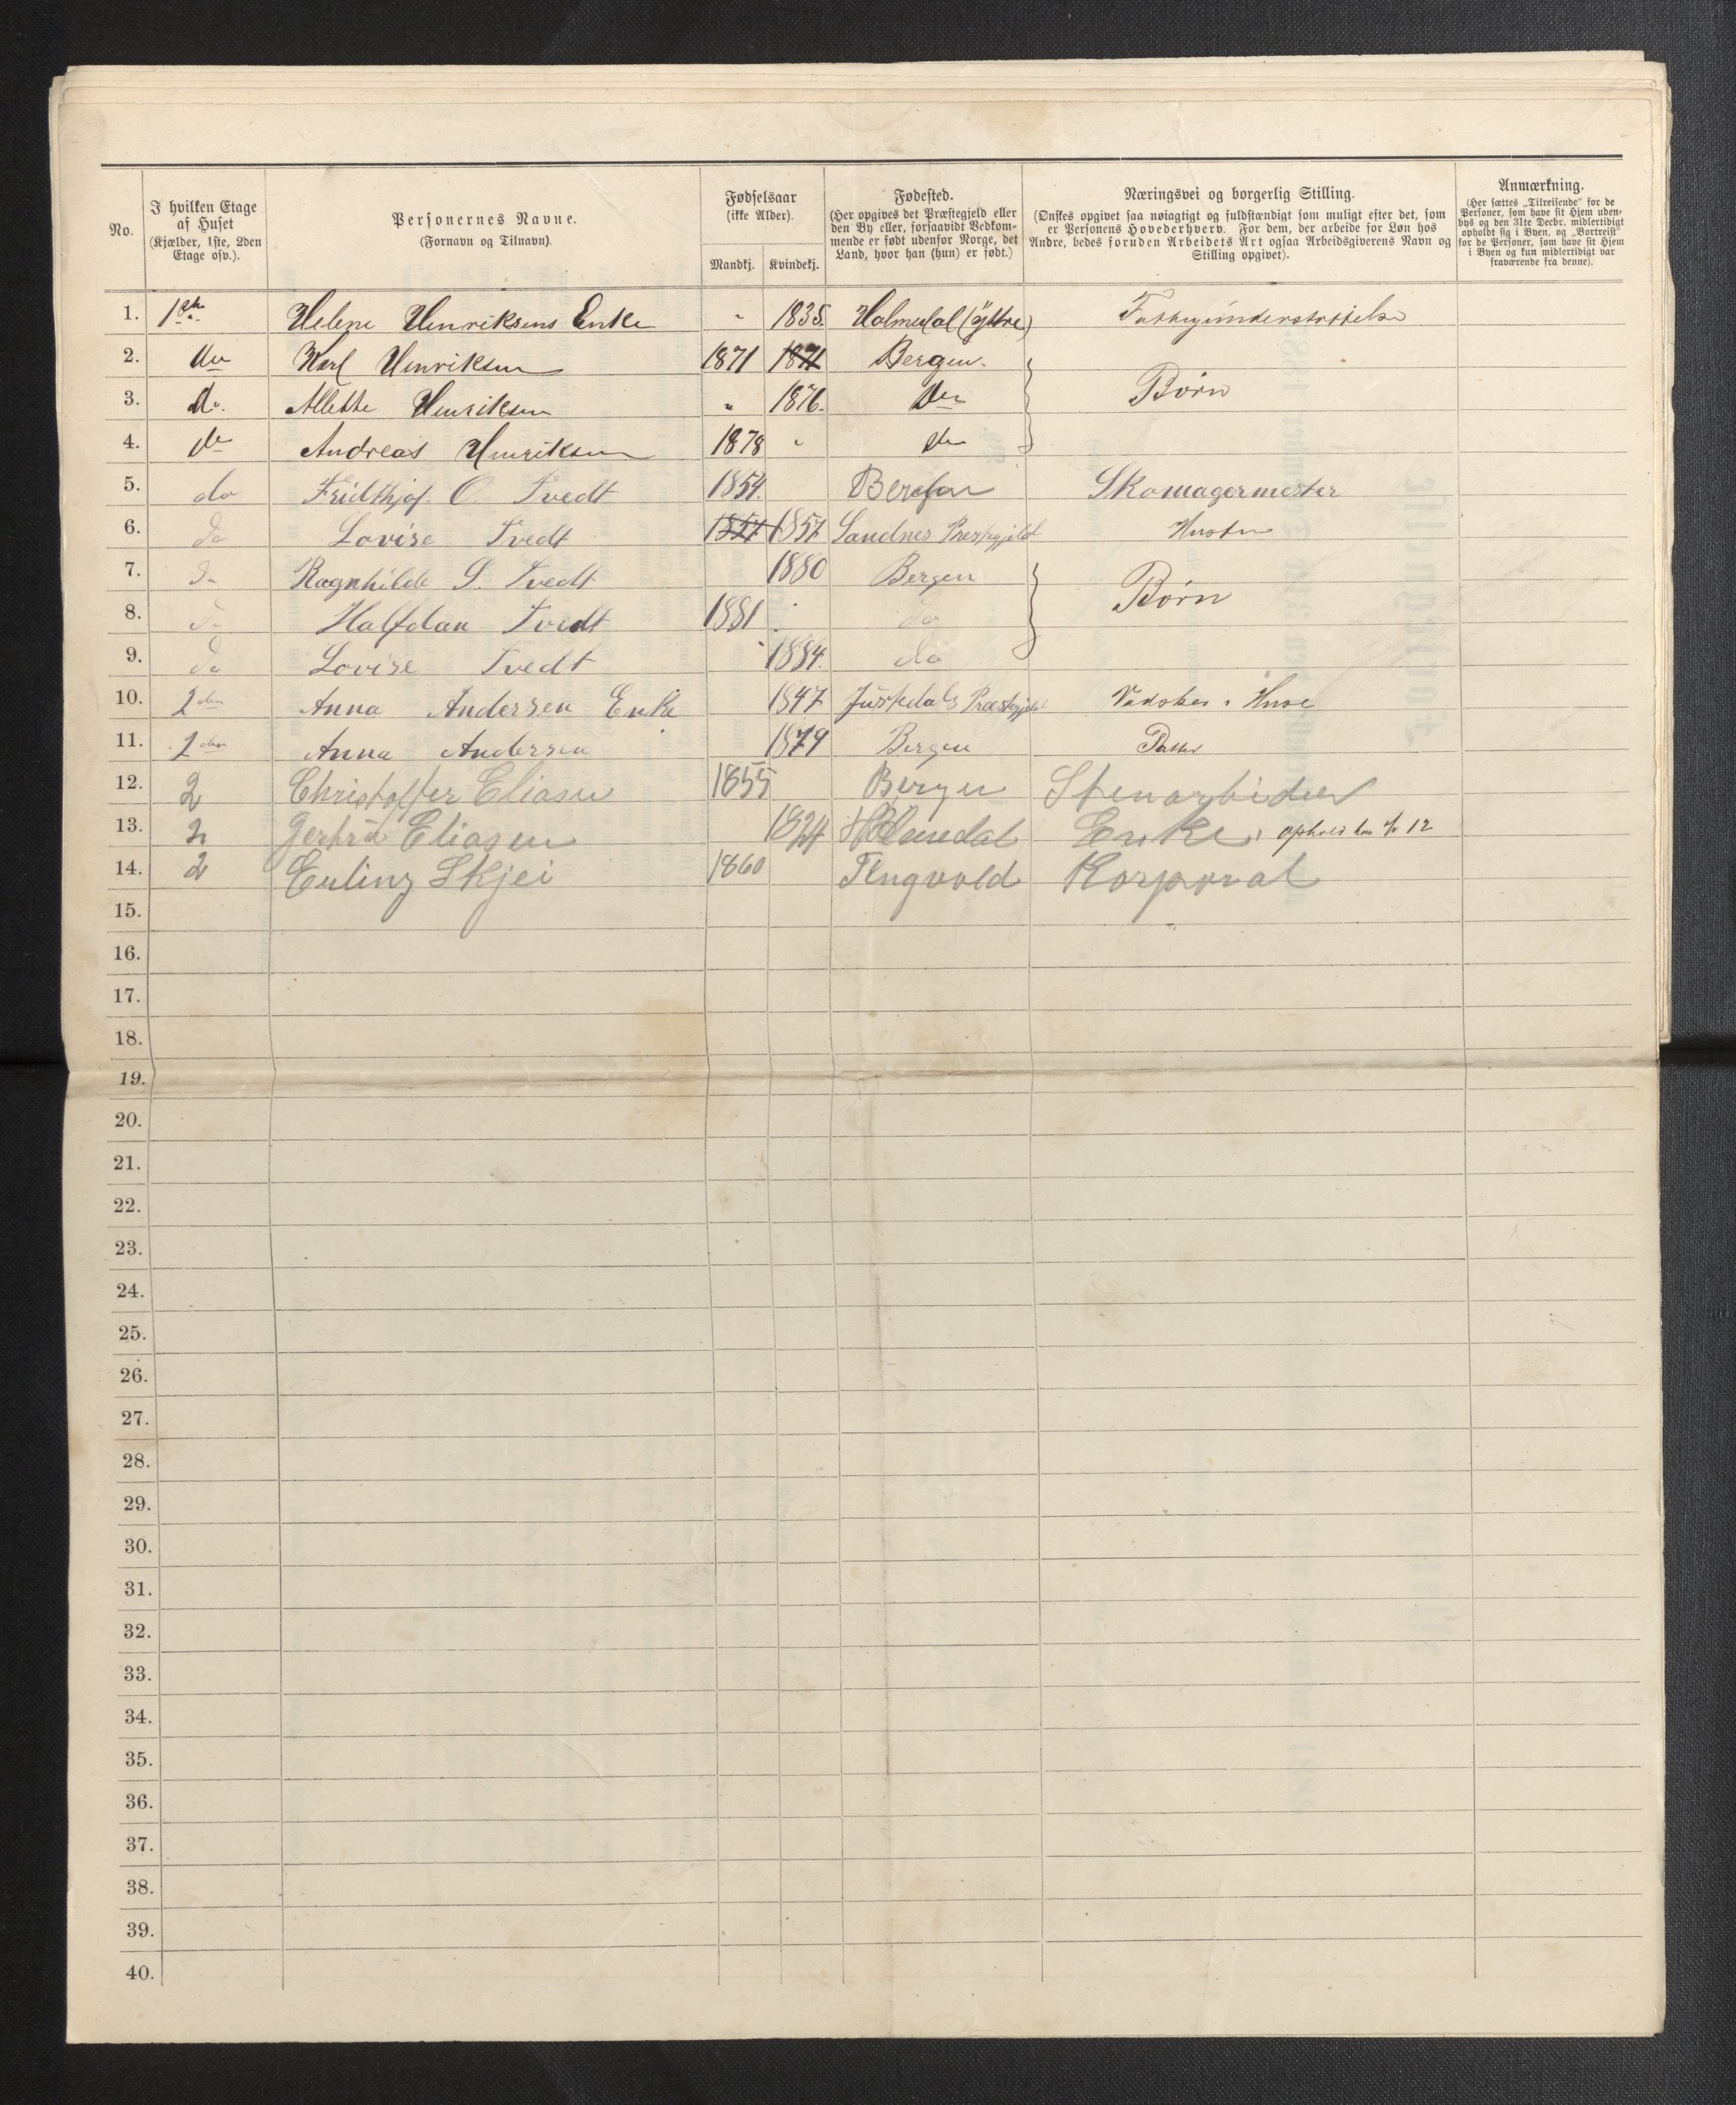 No.
I hvilken Etage af Huset (Kjælder, 1ste, 2den Etage osv.).
Personernes Navne. (Fornavn og Tilnavn).
Fødselsaar (ikke Alder).
Mandkj. Kvindekj.
Fødested. (Her opgives det Præstegjeld eller den By eller, forsaavidt Vedkommende er født udenfor Norge, det Land, hvor han (hun) er født.)
Næringsvei og borgerlig Stilling. (Ønskes opgivet saa nøiagtigt og fuldstændigt som muligt efter det, som er Personens Hovederhverv. For dem, der arbeide for Løn hos Andre, bedes foruden Arbeidets Art ogsaa Arbeidsgiverens Navn og Stilling opgivet).
Anmærkning. (Her sættes „Tilreisende“ for de Personer, som have sit Hjem udenbys og den 31te Decbr. midlertidigt opholdt sig i Byen, og „Bortreist“ for de Personer, som have sit Hjem i Byen og kun midlertidigt var fraværende fra denne).
1. 1ste Helene Henriksens Enke " 1835. Holmedal (yttre) Fattigunderstøttelse
2. do Karl Henriksen 1871 1871 Bergen.
3. do. Allette Henriksen " 1876. do Børn
4. do Andreas Henriksen 1878 " do
5. do Fridthjof. O. Tvedt 1854. Bergen Skomagermester
6. do Lovise Tvedt 1857 1857 Sandnes Prestegjeld Hustru
7. do Ragnhilde S. Tvedt 1880 Bergen
8. do Halfdan Tvedt 1881 do Børn
9. do Lovise Tvedt 1884. do
10. 2den Anna Andersen Enke 1847 Justedals Præstegjeld Vadsker i Huse
11. 2den Anna Andersen 1879 Bergen Datter
12. 2 Christoffer Eliasen 1855 Bergen Stenarbeider
13. 2 Eliasen 1824 Holmedal Enke, ophold hos No 12
14. 2 Erling Skjei 1860 Tingvold Korporal
15.
16.
17.
18.
19.
20.
21.
22.
23.
24.
25.
26.
27.
28.
29.
30.
31.
32.
33.
34.
35.
36.
37.
38.
39.
40.